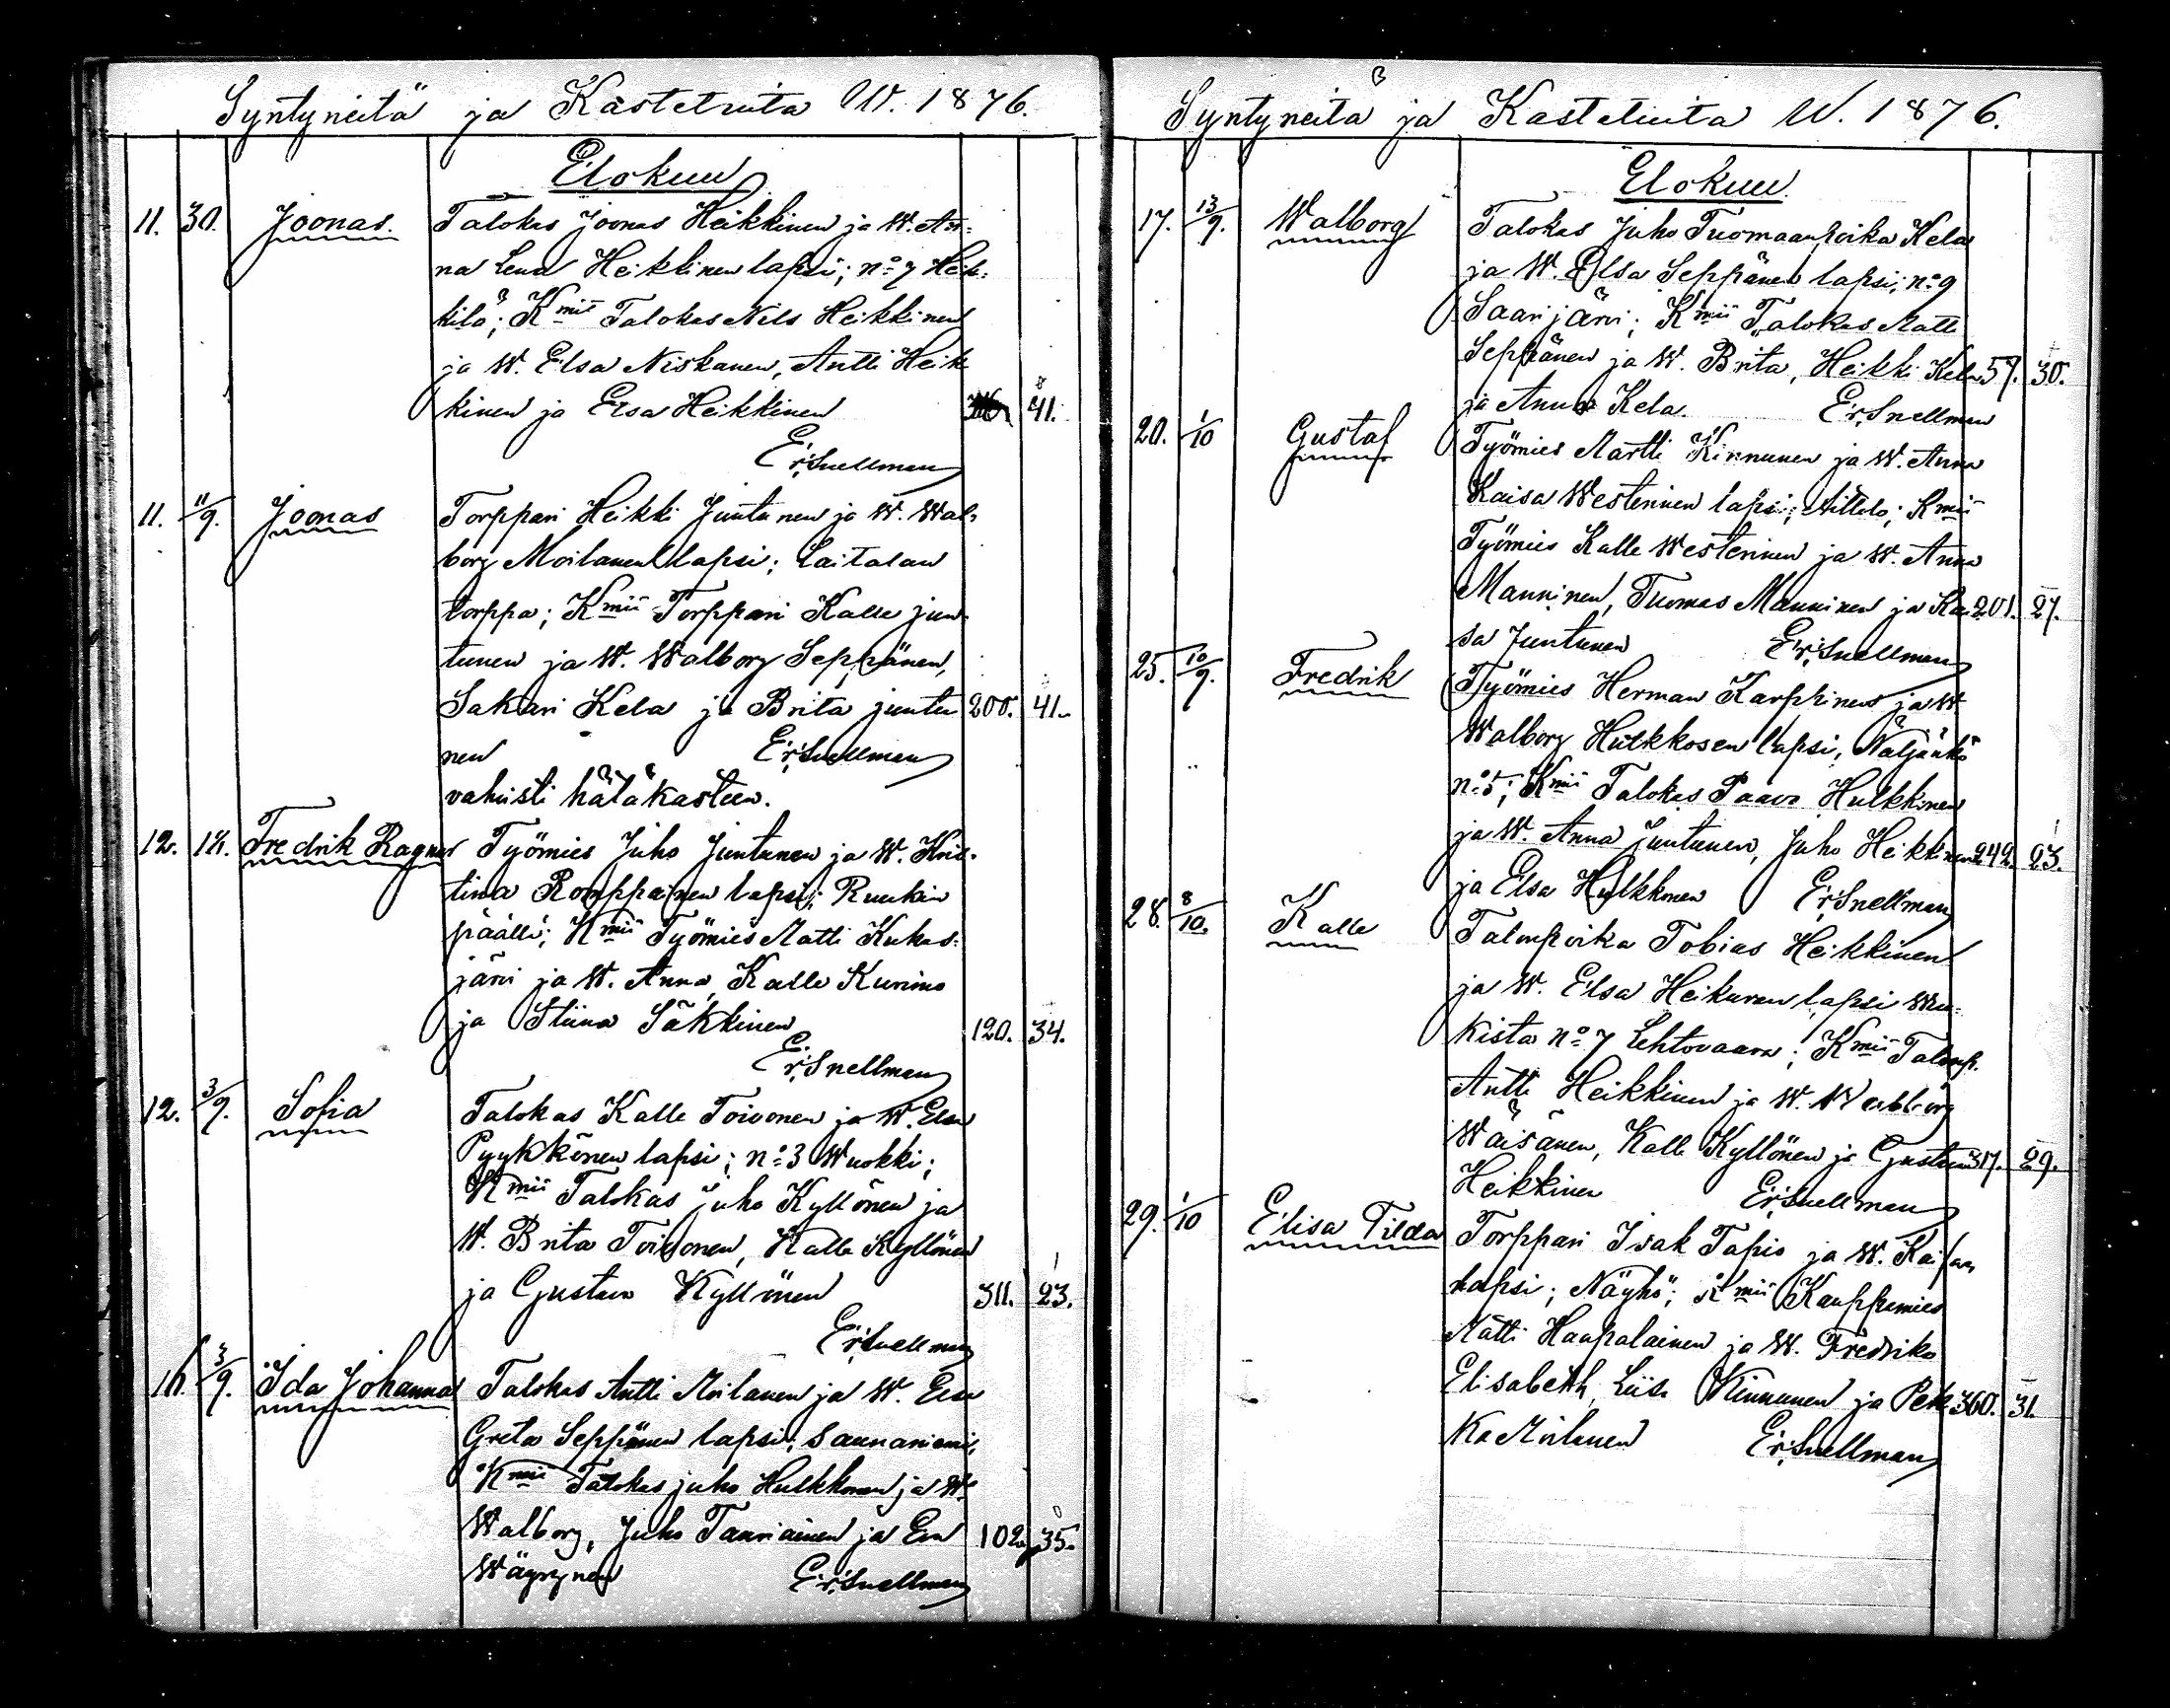 Syntyneitä ja Kastetuita W. 1876.
Elokuu
11. 30. Joonas. Talokas Joonas Heikkinen ja W. An-
na Lena Heikkinen lapsi; no 7 Heik-
kilä; Kmii Talokas Nils Heikkinen
ja W. Elsa Niskanen, Antti Heik
kinen ja Elsa Heikkinen 41.
E:r: Snellman
11. 11/9. Joonas Torppari Heikki Juntunen ja W. Wal-
borg Moilanen lapsi; Laitalan
torppa; Kmii Torppari Kalle Jun-
tunen ja W. Walborg Seppänen,
Sakari Kela ja Brita Juntu 200. 41.
nen E:r: Snellman
vahvisti hätäkasteen.
12. 18. Fredrik Ragnar Työmies Juho Juntunen ja W. Kris-
tina Romppainen lapsi; Ruukin
päällä; Kmii Työmies Matti Kukas-
järvi ja W. Anna, Kalle Kurimo
ja Stiina Säkkinen 120. 34.
E:r: Snellman
12. 3/9. Sofia Talokas Kalle Toivonen ja W. Elsa
Pyykkönen lapsi; no 3 Wuokki;
Kmii Talokas Juho Kyllönen ja
W. Brita Toivonen, Kalle Kyllönen
ja Gustava Kyllönen 311. 23.
E:r: Snellman
16. 3/9. Ida Johanna Talokas Antti Moilanen ja W. Eva
Greta Seppänen lapsi; Saunaniemi;
Kmii Talokas Juho Hulkkonen ja W.
Walborg, Juho Tauriainen ja Eva 102. 35.
Wäyrynen E:r: Snellman
Syntyneitä ja Kastetuita W. 1876.
Elokuu
17. 13/9. Walborg Talokas Juho Tuomaanpoika Kela
ja W. Elsa Seppänen lapsi; no 9
Saarijärvi; Kmii Talokas Matti
Seppänen ja W. Brita, Heikki Kela 57. 30.
ja Anna Kela. E:r: Snellman
20. 1/10 Gustaf Työmies Martti Kinnunen ja W. Anna
Kaisa Westerinen lapsi; Kmii
Työmies Kalle Westerinen ja W. Anna
Manninen, Tuomas Manninen ja Kai 201. 27.
sa Juntunen E:r: Snellman
25. 10/9. Fredrik Työmies Herman Karppinen ja W
Walborg Hulkkosen lapsi, Näljänkö
no 5; Kmii Talokas Paavo Hulkkonen
ja W. Anna Juntunen, Juho Heikkinen 242. 23.
ja Elsa Hulkkonen E:r: Snellman
28. 8/10. Kalle Talonpoika Tobias Heikkinen
ja W. Elsa Heikuran lapsi Wuo-
kista no 7 Lehtovaara; Kmii Talonp.
Antti Heikkinen ja W. Walborg
Wäisänen, Kalle Kyllönen ja Gustava 317. 29.
Heikkinen E:r: Snellman
29. 1/10 Elisa Tilda Torppari Isak Tapio ja W. Kaisan
lapsi; Näyhö; Kmii Kauppamies
Matti Haapalainen ja W. Fredrika
Elisabeth, Liisa Kinnunen ja Pek 360. 31.
ka Moilanen E:r: Snellman